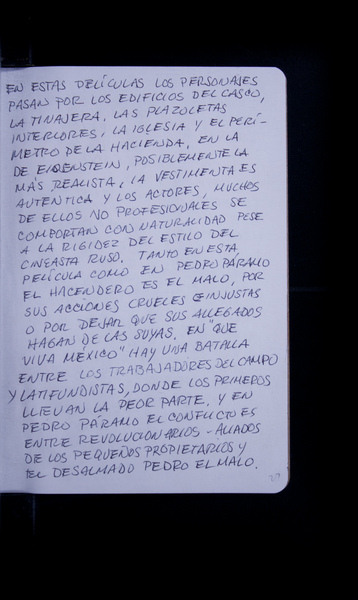 EN ESTAS PELÍCULAS LOS PERSONAJES
PASAN POR LOS EDIFICIOS DEL CASCO,
LA TINAJERA, LAS PLAZOLETAS
INTERIORES, LA IGLESIA Y EL PERÍ-
METRO DE LA HACIENDA. EN LA
DE EISENSTEIN, POSIBLEMENTE LA
MÁS REALISTA, LA VESTIMENTA ES
AUTÉNTICA Y LOS ACTORES, MUCHOS
DE ELLOS NO PROFESIONALES SE
COMPORTAN CON NATURALIDAD PESE
A LA RIGIDEZ DEL ESTILO DEL
CINEASTA RUSO. TANTO EN ESTA
PELÍCULA COMO EN PEDRO PÁRAMO
EL HACENDERO ES EL MALO, POR
SUS ACCIONES CRUELES E INJUSTAS
O POR DEJAR QUE SUS ALLEGADOS
HAGAN DE LAS SUYAS. EN "QUE
VIVA MÉXICO" HAY UNA BATALLA
ENTRE LOS TRABAJADORES DEL CAMPO
Y LATIFUNDISTAS, DONDE LOS PRIMEROS
LLEVAN LA PEOR PARTE. Y EN
PEDRO PÁRAMO EL CONFLICTO ES
ENTRE REVOLUCIONARIOS - ALIADOS
DE LOS PEQUEÑOS PROPIETARIOS Y
EL DESALMADO PEDRO EL MALO.